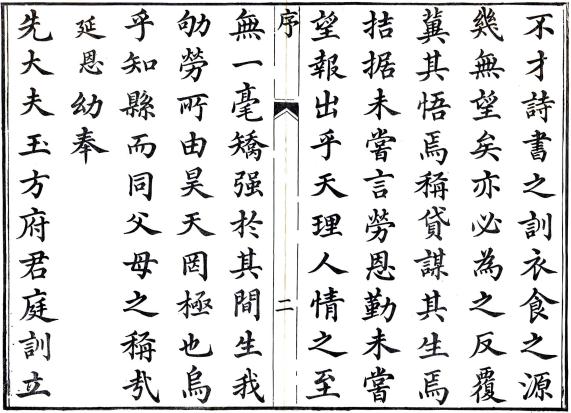 不才詩書之訓衣食之源
幾無望矣亦必為之反覆
冀其悟焉稱貸謀其生焉
拮据未嘗言勞恩勤未嘗
望報出乎天理人情之至
序 二
無一毫矯强於其間生我
劬勞所由昊天罔極也烏
乎知縣而同父母之稱㢤
延恩幼奉
先大夫玉方府君庭訓立